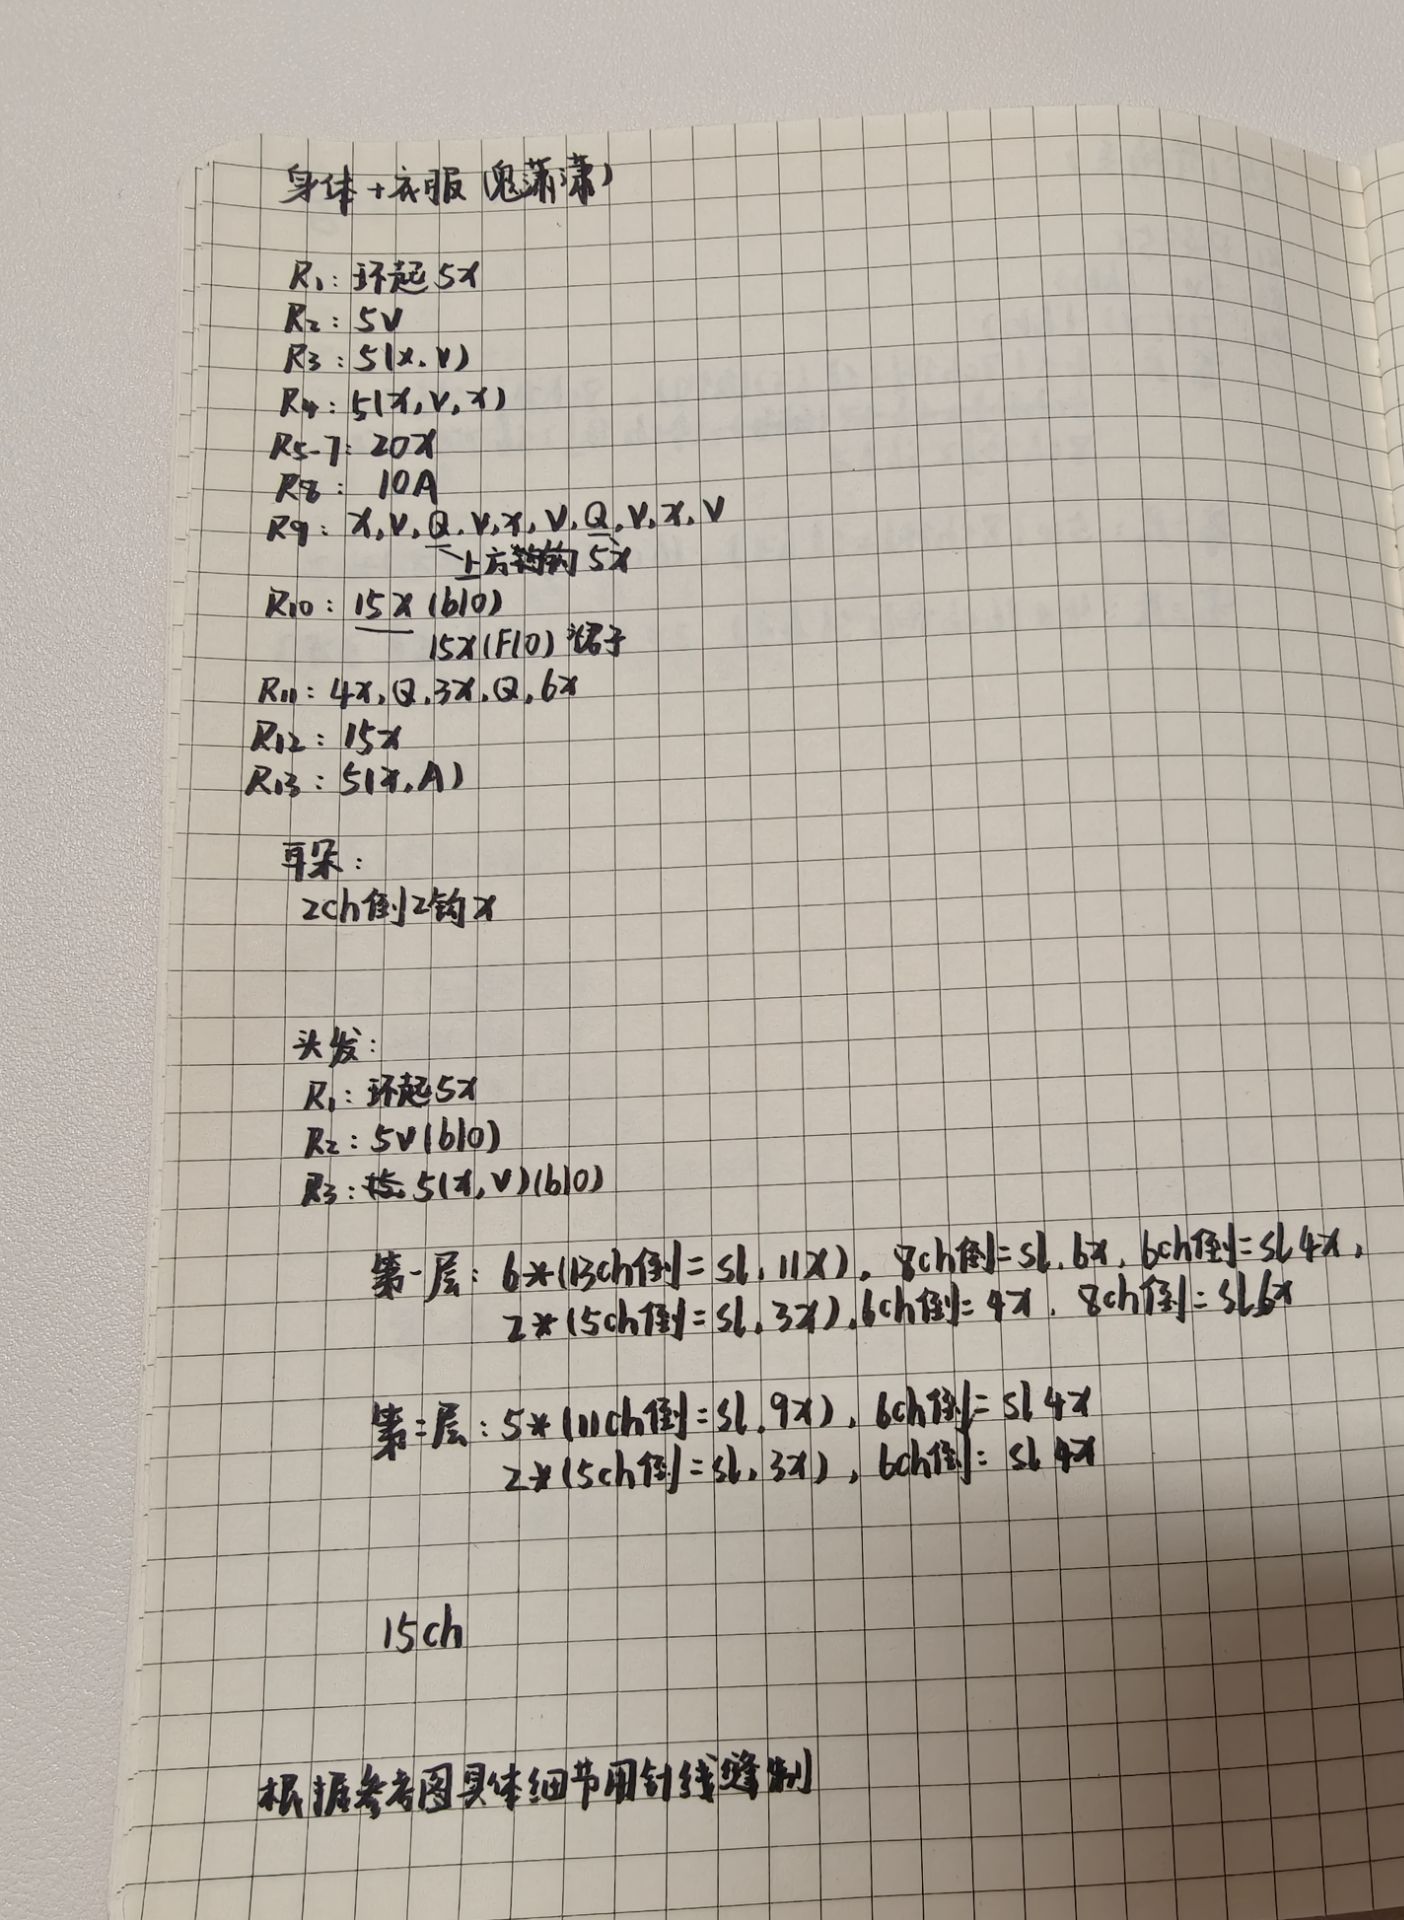 身体+衣服(鬼潇潇)
R1: 环起5x
R2: 5V
R3: 5(x.V)
R4: 5(x,V,x)
R5-7: 20x
R8: 10A
R9: x,V,Q.V,x,V,Q,V,x,V
上方钩 5x
R10: 15x (blo)
15x(Flo) 裙子
R11: 4x,Q,3x,Q,6x
R12: 15x
R13: 5(x.A)
耳朵:
2ch倒2钩x
头发:
R1: 环起5x
R2: 5V(blo)
R3: 5(x,V)(blo)
第一层: 6*(13ch倒=sl,11x), 8ch倒=sl.6x, 6ch倒=sl4x,
2*(5ch倒=sl,3x),6ch倒=4x, 8ch倒=sl6x
第二层: 5*(11ch倒=sl.9x), 6ch倒=sl 4x
2*(5ch倒=sl,3x), 6ch倒=sl 4x
15ch
根据参考图具体细节用针线缝制